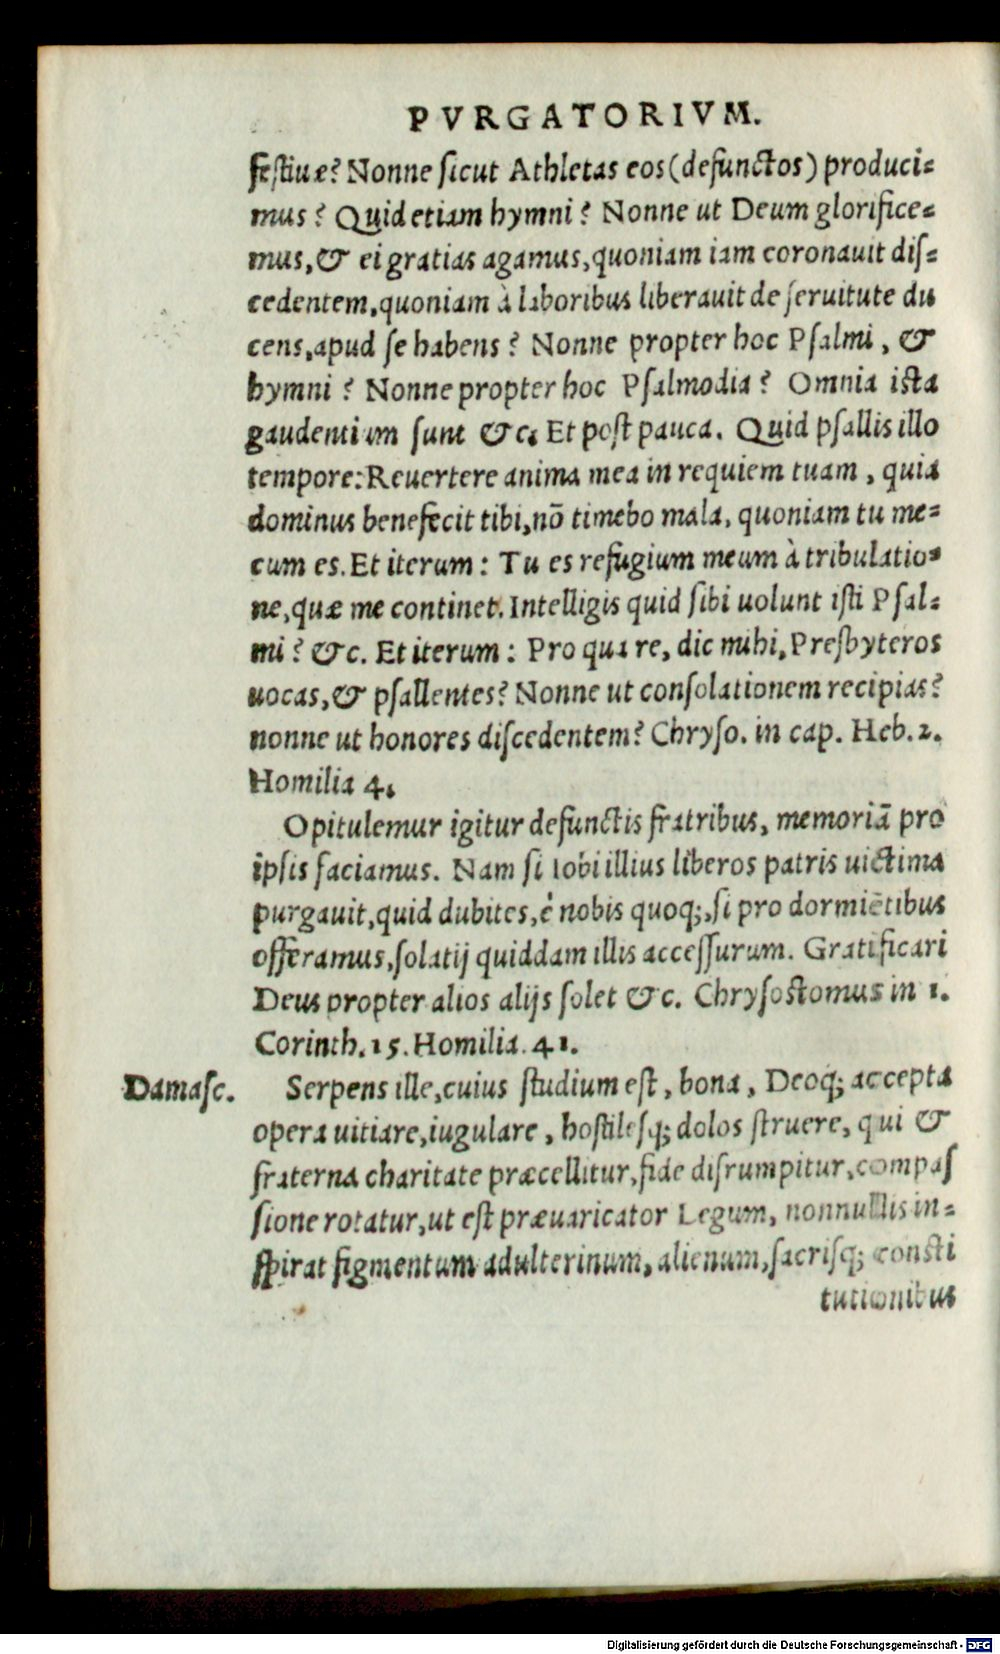 PVRGATORIVM.
festiuæ? Nonne sicut Athletas eos (defunctos) produci-
mus? Quid etiam hymni? Nonne ut Deum glorifice-
mus, & ei gratias agamus, quoniam iam coronauit dis-
cedentem, quoniam à laboribus liberauit de seruitute du
cens, apud se habens? Nonne propter hoc Psalmi, &
hymni? Nonne propter hoc Psalmodia? Omnia ista
gaudentium sunt &c. Et post pauca. Quid psallis illo
tempore: Reuertere anima mea in requiem tuam, quia
dominus benefecit tibi, nō timebo mala, quoniam tu me-
cum es. Et iterum: Tu es refugium meum à tribulatio-
ne, quæ me continet. Intelligis quid sibi uolunt isti Psal-
mi? &c. Et iterum: Pro qua re, dic mihi, Presbyteros
uocas, & psallentes? Nonne ut consolationem recipias?
nonne ut honores discedentem? Chryso. in cap. Heb. 2.
Homilia 4.
Opitulemur igitur defunctis fratribus, memoriā pro
ipsis faciamus. Nam si Iobi illius liberos patris uictima
purgauit, quid dubites, è nobis quoq;, si pro dormiētibus
offeramus, solatij quiddam illis accessurum. Gratificari
Deus propter alios alijs solet &c. Chrysostomus in 1.
Corinth. 15. Homilia. 41.
Damasc. Serpens ille, cuius studium est, bona, Deoq; accepta
opera uitiare, iugulare, hostilesq; dolos struere, qui &
fraterna charitate præcellitur, fide disrumpitur, compas
sione rotatur, ut est præuaricator Legum, nonnullis in-
spirat figmentum adulterinum, alienum, sacrisq; consti
tutionibus
Digitalisierung gefördert durch die Deutsche Forschungsgemeinschaft - DFG